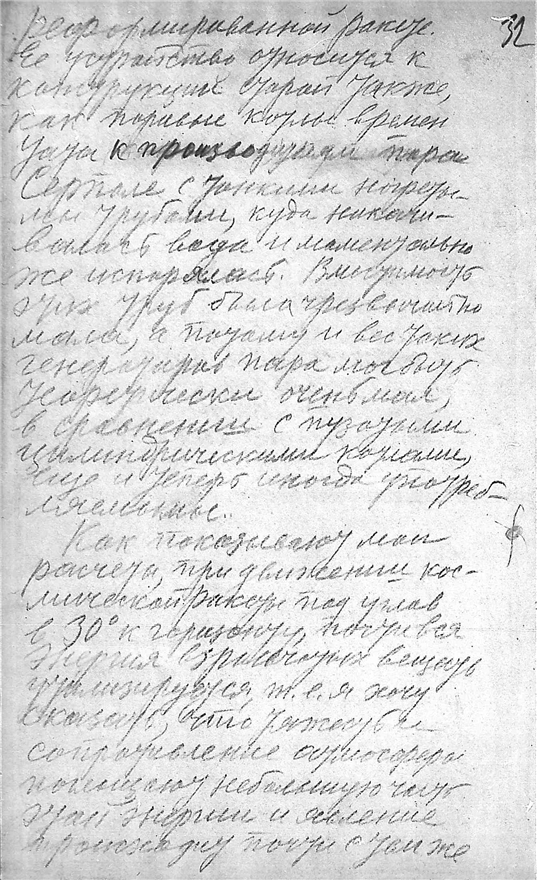 32
реформированной ракеты.
Ее устройство относится к
конструкции старой также,
как паровые котлы времен
Уата к производителям пара
Серполе с тонкими нагреты-
ми трубами, куда накачи-
валась вода и моментально
же испарялась. Вместимость
этих труб была чрезвычайно
мала, а потому и вес таких
генераторов пара мог быть
теоретически очень мал,
в сравнении с пузатыми
цилиндрическими котлами,
еще и теперь иногда употреб-
ляемыми.
Как показывают мои
расчеты, при движении кос-
мической ракеты под углом
в 30° к горизонту, почти вся
энергия взрывчатых веществ
утилизируется, т.е. я хочу
сказать, что тяжесть и
сопротивление атмосферы
поглощают небольшую часть
этой энергии и явление
происходит почти с тем же